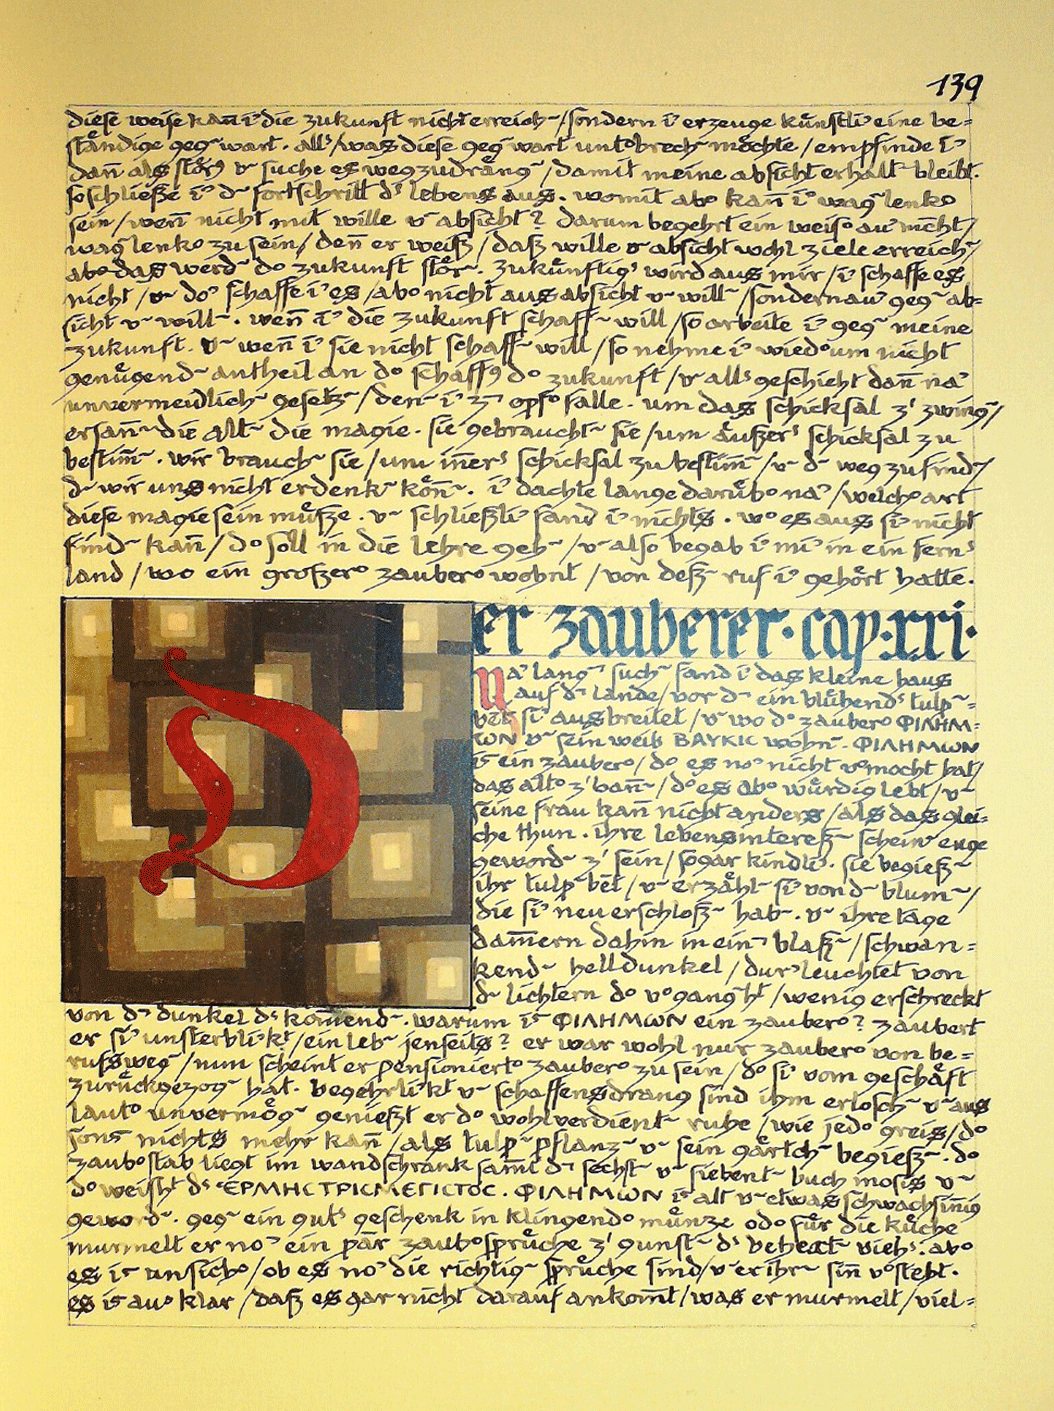 139
diese weise kan̄ i' die zukunft nicht erreich~/sondern i' erzeuge künstli' eine be=
ständige geg~wart. all's/was diese geg~wart unt°brech~ möchte/empfinde i'
dan̄ als störg v~ suche es wegzudräng~/damit meine absicht erhalt~ bleibt.
so schließe i' d~ fortschritt d's lebens aus. womit ab° kan̄ i' wag~lenk°
sein/wen̄ nicht mit wille v~ absicht? darum begehrt ein weis° au' nicht/
wag~lenk° zu sein/den̄ er weiß/daß wille v~ absicht wohl ziele erreich~/
ab° das werd~ d° zukunft stör~. zukünftig's wird aus mir/i' schaffe es
nicht/v~ do' schaffe i' es/ab° nicht aus absicht v~ will~/sondern au' geg~ ab=
sicht v~ will~. wen̄ i' die zukunft schaff~ will/so arbeite i' geg~ meine
zukunft. v~ wen̄ i' sie nicht schaff~ will/so nehme i' wied°um nicht
genügend~ antheil an d° schaffg d° zukunft/v~ all's geschieht dan̄ na'
unvermeidlich~ gesetz~/den~ i' z~ opf° falle. um das schicksal z' zwing~/
ersan̄~ die alt~ die magie. sie gebraucht~ sie/um äußer's schicksal zu
bestim̄~. wir brauch~ sie/um in̄er's schicksal zu bestim̄~/v~ d~ weg zu find~/
d~ wir uns nicht erdenk~ kön̄~. i' dachte lange darüb° na'/welch° art
diese magie sein müsze. v~ schließli' fand i' nichts. w° es aus si' nicht
find~ kan̄/d° soll in die lehre geh~/v~ also begab i' mi' in ein fern's
land/wo ein großer° zaub°er wohnt/von deß~ ruf i' gehört hatte.
Der zauberer. cap. xxi.
Na' lang~ such~ fand i' das kleine haus
auf d~ lande/vor d~ ein blühend's tulp~
bēt si' ausbreitet/v~ wo d° zauber° ΦΙΛΗΜ=
ΩΝ v~ sein weib ΒΑΥΚΙϹ wohn~. ΦΙΛΗΜΩΝ
is' ein zauber°/d° es no' nicht v°mocht hat/
das alt° z' ban̄~/d° es ab° würdig lebt/v~
seine frau kan̄ nicht anders/als das glei=
che thun. ihre lebensintereß~ schein~ enge
geword~ z' sein/sogar kindli'. sie begieß~
ihr tulp~bēt/v~ erzähl~ si' von d~ blum~/
die si' neu erschloß~ hab~. v~ ihre tage
däm̄ern dahin in ein~ blaß~/schwan=
kend~ helldunkel/dur'leuchtet von
d~ lichtern d° v°gang~ht/wenig erschreckt
von d~ dunkel d's kom̄end~. warum is' ΦΙΛΗΜΩΝ ein zauber°? zaubert
er si' unsterbli'k't/ein leb~ jenseits? er war wohl nur zauber° von be=
rufsweg~/nun scheint er pensioniert° zauber° zu sein/d° si' vom geschäft
zurückgezog~ hat. begehrli'k't v~ schaffensdrang sind ihm erlosch~ v~ aus
laut° unvermög~ genießt er d° wohlverdient~ ruhe/wie jed° greis/d°
sons' nichts mehr kan̄/als tulp~ pflanz~ v~ sein gärtch~ begieß~. d°
zaub°stab liegt im wandschrank sam̄t d~ sechst~ v~ siebent~ buch mosis v~
d° weisht d's ἙΡΜΗϹ ΤΡΙϹΜΕΓΙϹΤΟϹ. ΦΙΛΗΜΩΝ is' alt v~ etwas schwachsin̄ig
geword~. geg~ ein gut's geschenk in klingend° münze od° für die küche
murmelt er no' ein paar zaub°sprüche z' gunst~ d's behext~ vieh's: ab°
es is' unsich°/ob es no' die richtig~ sprüche sind/v~ er ihr~ sin̄ v°steht.
es is' au' klar/daß es gar nicht darauf ankom̄t/was er murmelt/viel=